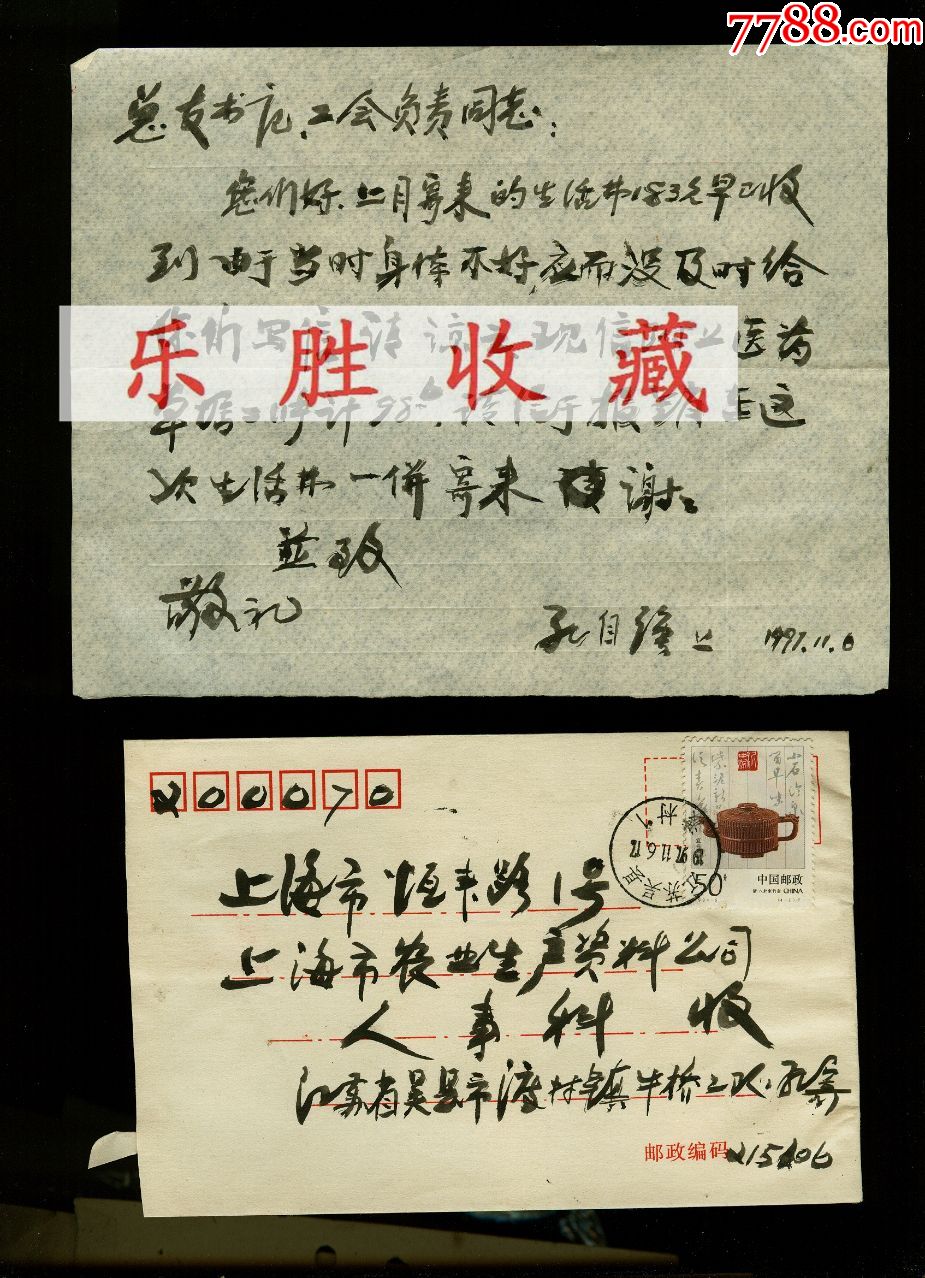 7788.com
总支书记、工会负责同志:
您们好、上月寄来的生活补183元早已收
到 由于当时身体不好,应而没及时给
您们写信请谅。现信
医药
乐胜收藏
单据
报销 在这
次生活补一併寄来 谢。
並致
敬礼
孔自 上 1997.11.6
200070
上海市恒丰路1号
上海市农业生产资料公司
人事科 收
江苏省吴县市渡村镇牛桥二队 孔寄
邮政编码 215106
江苏吴县
97.11.6.17
村
50
中国邮政
CHINA